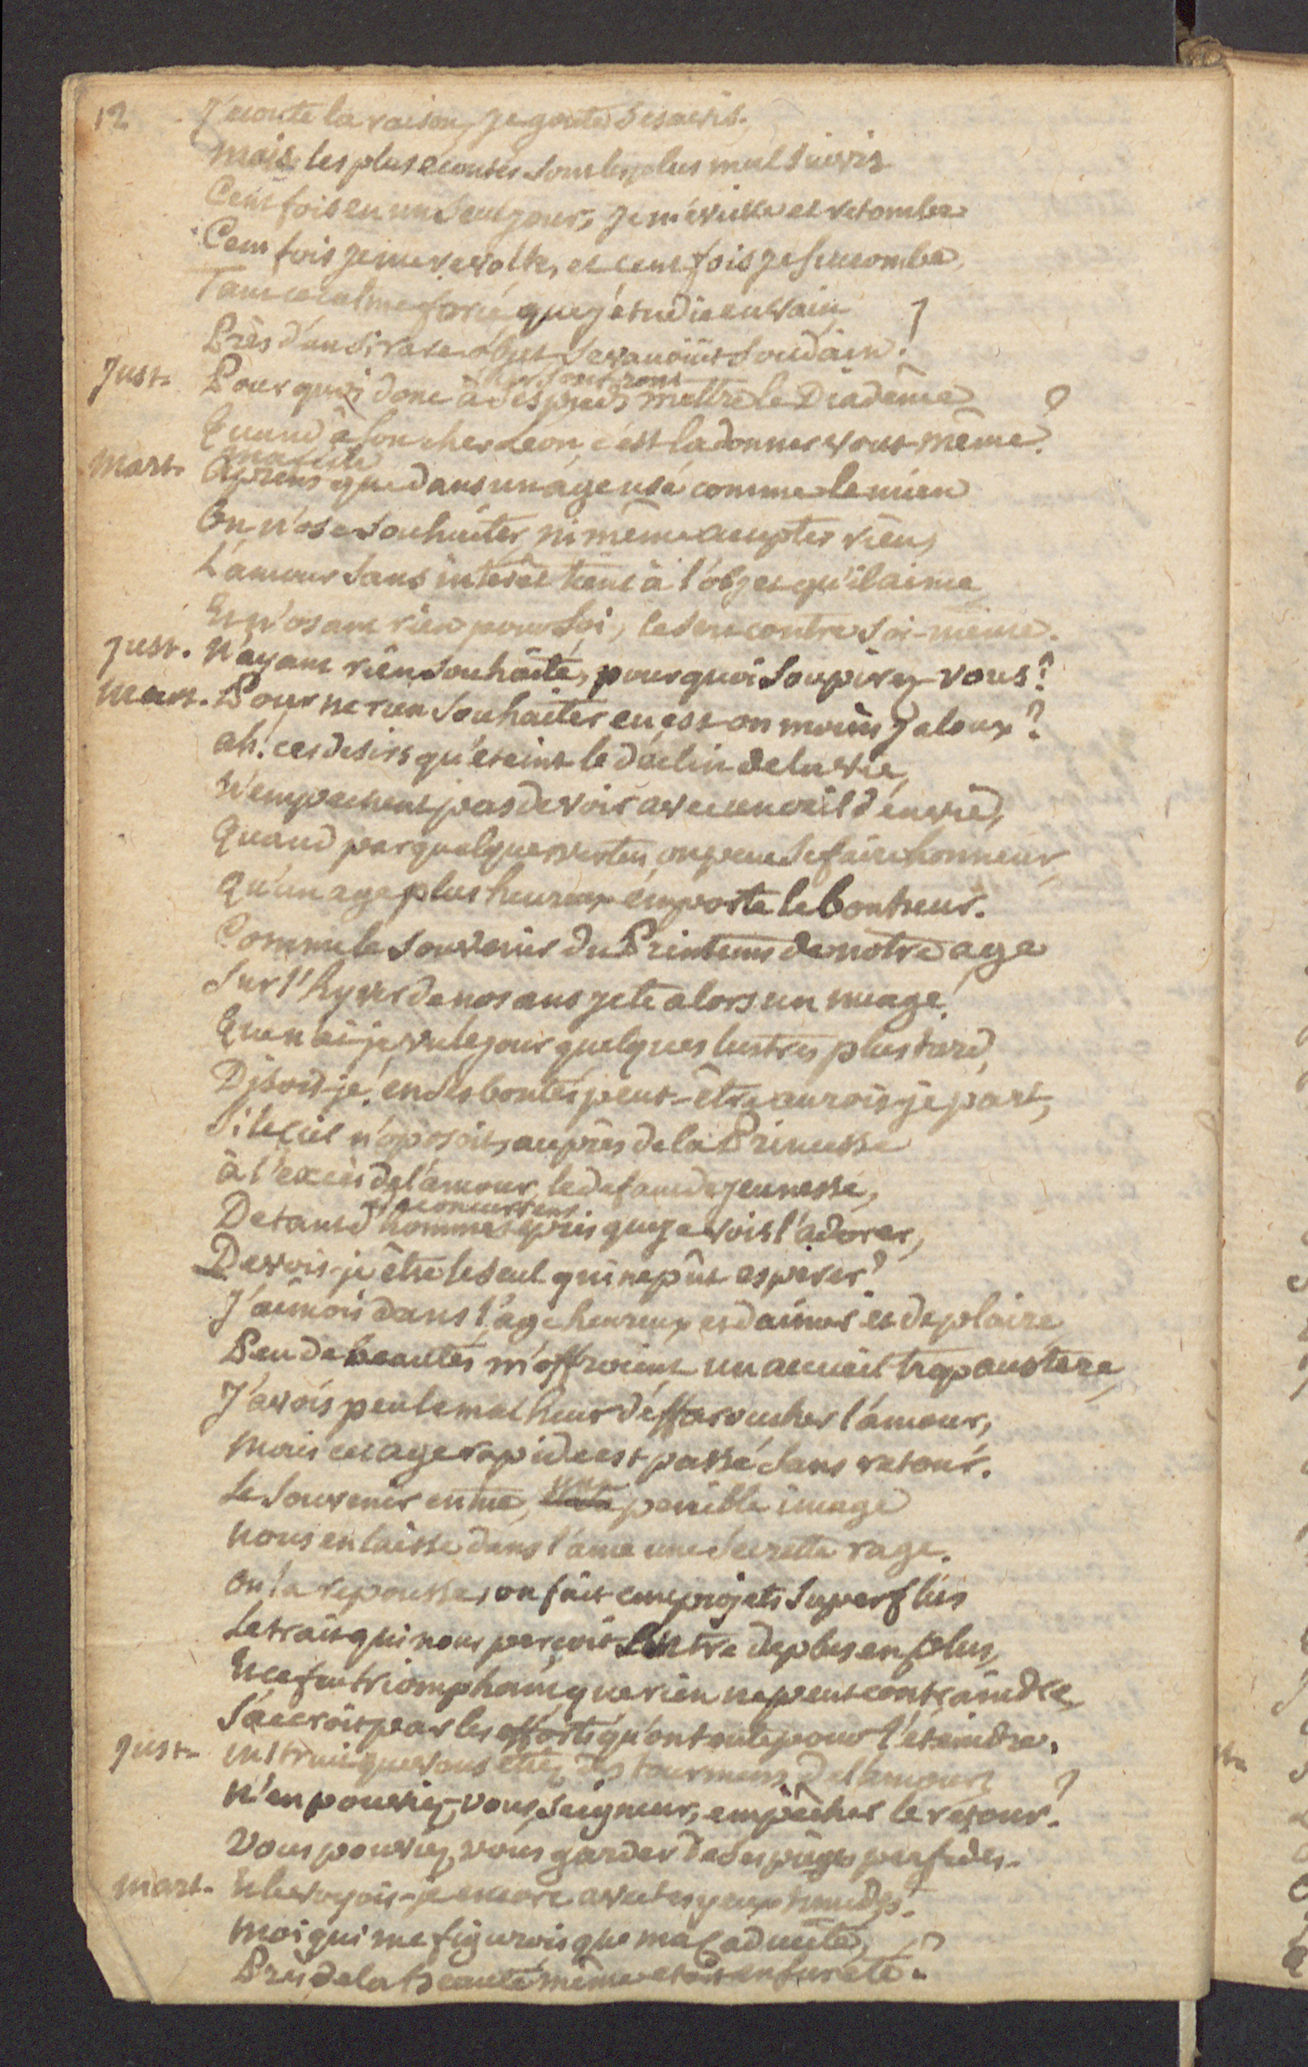 12 J'écoute la raison, je goute ses avis.
mais les plus ecoutés sont les plus mal suivis
Cent fois en un seul jour, je m'évite et retombe
Cent fois je me revolte, et cent fois je succombe,
Tant ce calme forcé que j'étudie en vain
Près d'un si rare objet s'evanouit soudain!
Just. Pourquoi donc à ses pieds mettre le Diadême
Quand à son cher Leon, c'est la donner vous-même?
mart. Aprens que dans un âge usé comme le mien
On n'ose souhaiter, ni même accepter rien,
L'amour sans intérêt tient à l'objet qu'il aime
Et n'osant rien pour soi, le sert contre soi-même.
Just. N'ayant rien souhaité, pourquoi soupirez-vous?
mart. Pour ne rien souhaiter en est-on moins jaloux?
ah! ces desirs qu'éteint le déclin de la vie,
N'empechent pas de voir avec un oeil d'envie,
Quand par quelques vertus, on peut se faire honneur,
Qu'un age plus heureux emporte le bonheur.
Comme le souvenir du Printems de notre age
Sur l'hyver de nos ans jete alors un nuage!
Que n'ai-je vu le jour quelques lustres plus tard,
Disois-je! en ses bontés peut-être aurois-je part,
Si le Ciel n'oposoit, auprès de la Princesse
à l'excès de l'amour, le defaut de jeunesse,
concurrens
De tant d'hommes épris que je vois l'adorer,
Devois-je être le seul qui ne pût esperer?
J'aimois dans l'age heureux et d'aimer et de plaire
Peu de beautés m'offroient un accueil trop austere,
J'avois peu le malheur d'effaroucher l'amour,
Mais cet age rapide est passé sans retour.
Le souvenir en tue, penible image
Nous en laisse dans l'ame une secrette rage.
On la repousse, on fait cent projets superflus
Le trait qui nous perçoit entre de plus en plus,
Et ce feu triomphant, que rien ne peut contraindre,
S'accroit par les efforts qu'on tente pour l'éteindre.
Just. Instruit que vous etiez des tourmens de l'amour,
N'en pouviez-vous, Seigneur, empêcher le retour?
Vous pouviez vous garder de ses pièges perfides.
mart. Et les voyois-je encore avec tes yeux timides!
Moi qui me figurois que ma Caducité,
Près de la beauté même etoit en sureté?